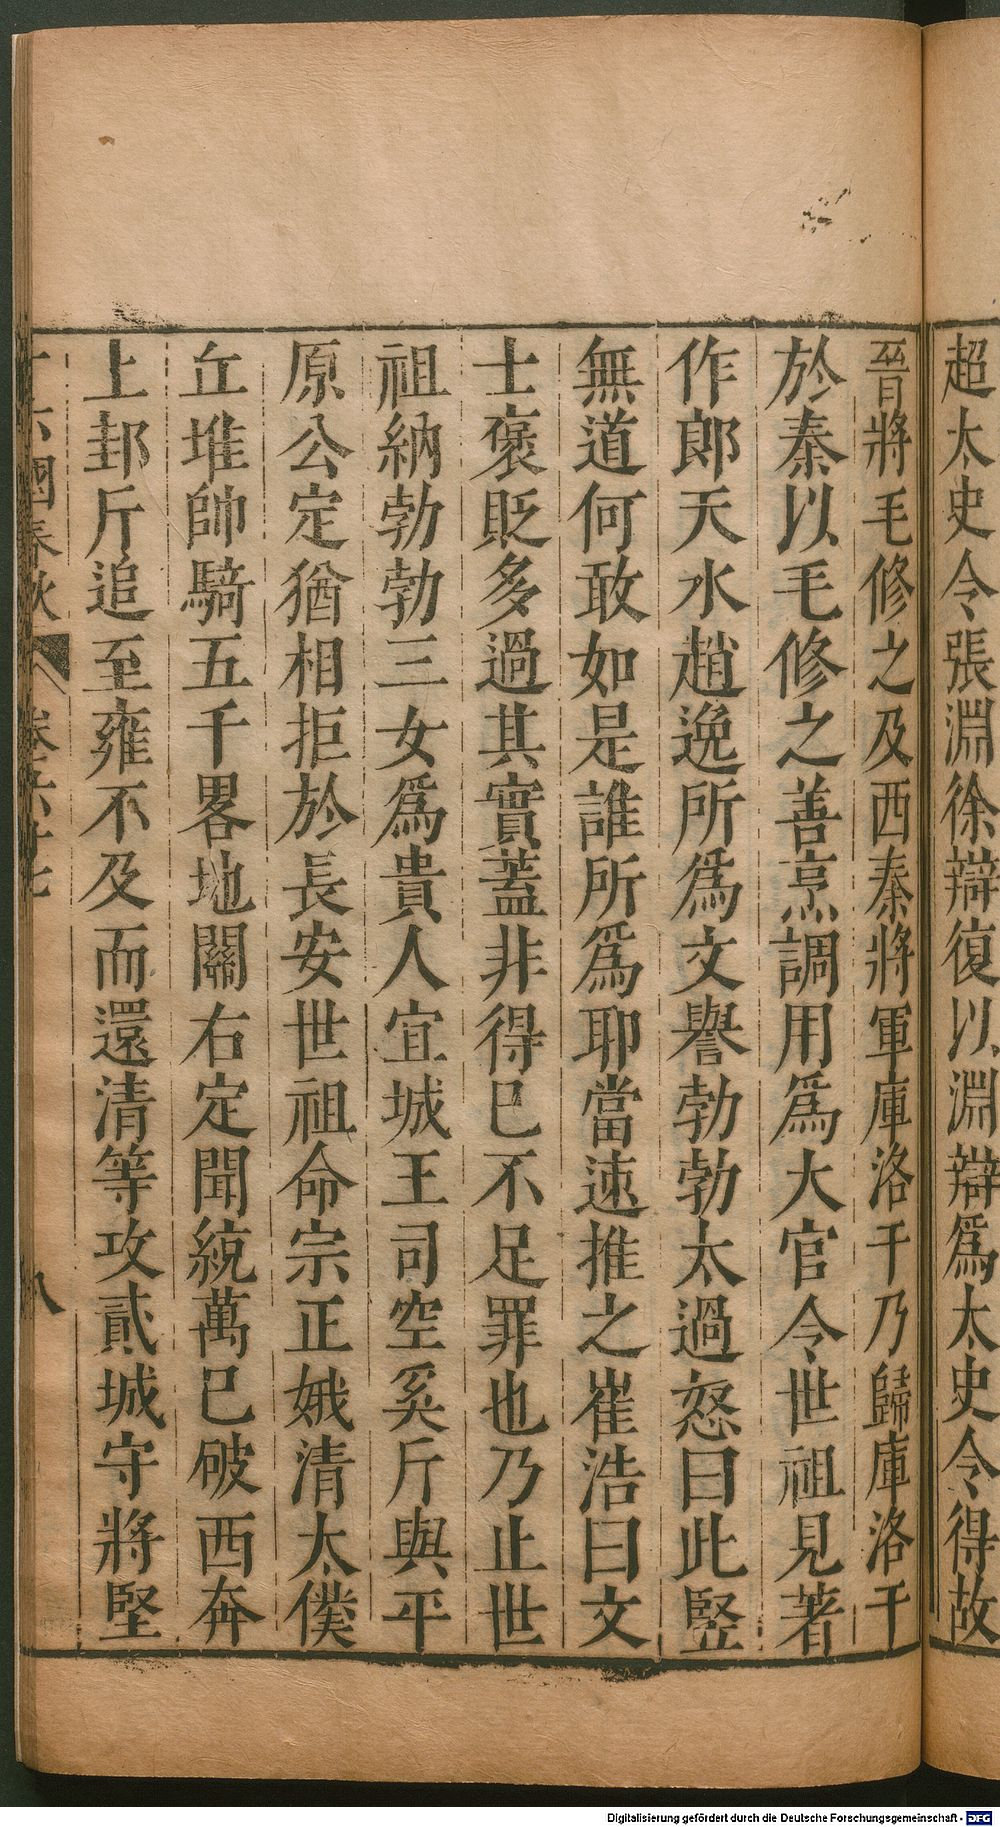 超太史令張淵徐辯復以淵辯爲太史令得故
晉將毛修之及西秦將軍庫洛干乃歸庫洛干
於秦以毛修之善烹調用爲大官令世祖見著
作郎天水趙逸所爲文譽勃勃太過怒曰此竪
無道何敢如是誰所爲耶當速推之崔浩曰文
士褒貶多過其實蓋非得已不足罪也乃止世
祖納勃勃三女爲貴人宜城王司空奚斤與平
原公定猶相拒於長安世祖命宗正娥清太僕
丘堆帥騎五千畧地關右定聞統萬已破西奔
上邽斤追至雍不及而還清等攻貳城守將堅
十六國春秋 卷六十七 八
Digitalisierung gefördert durch die Deutsche Forschungsgemeinschaft - DFG